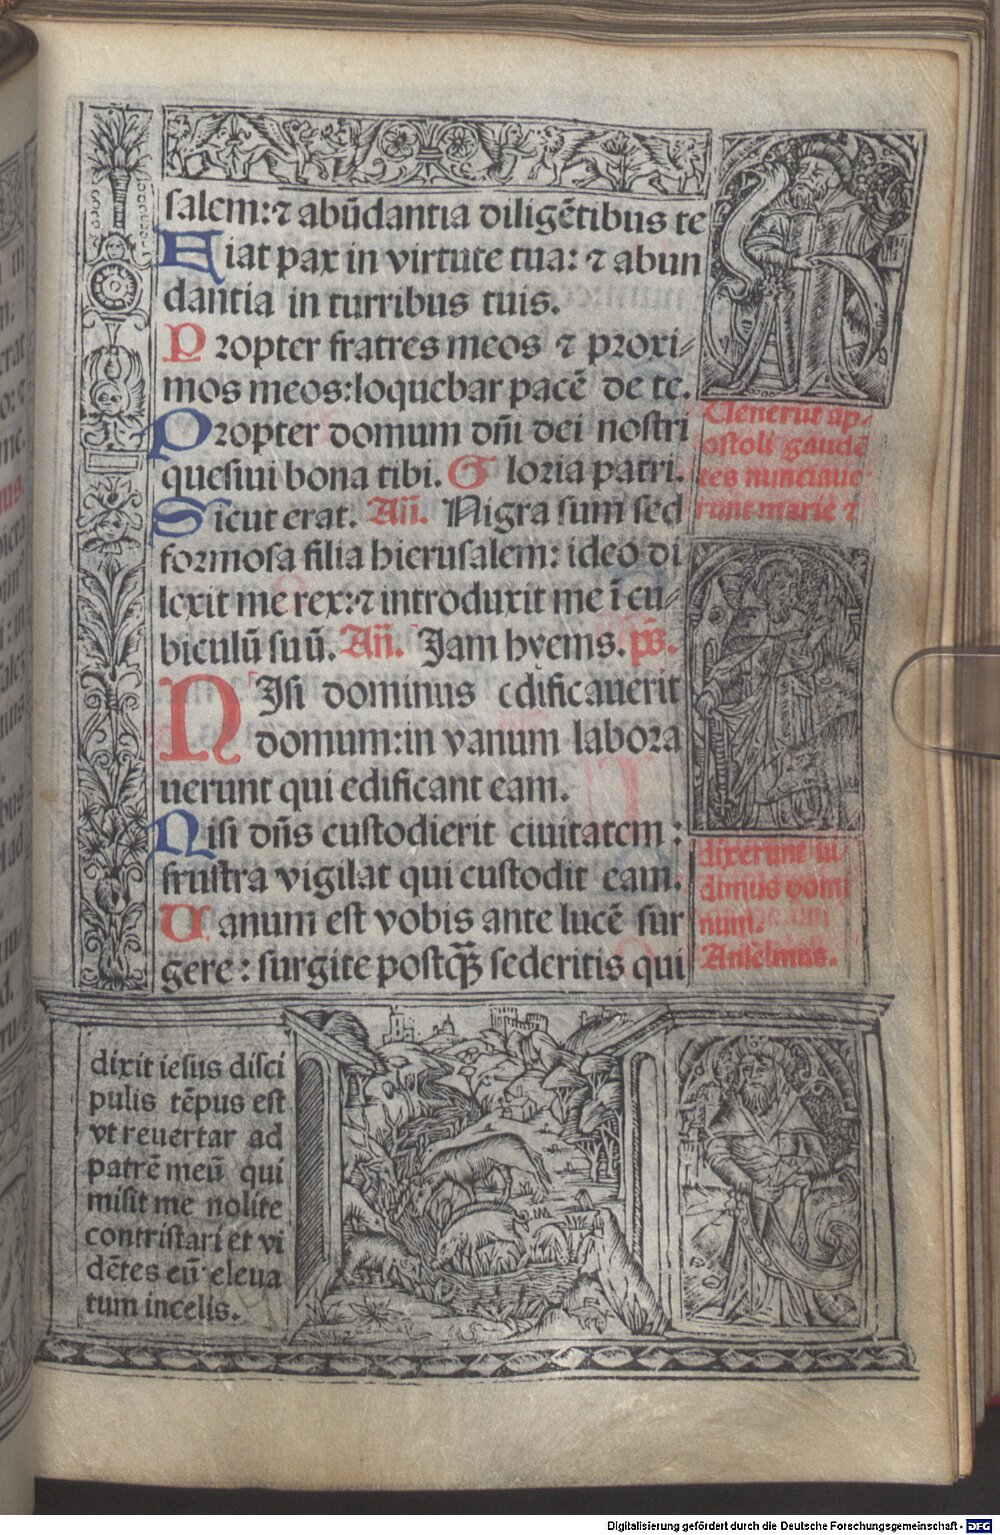 salem:⁊ abũdantia diligẽtibus te
Fiat pax in virtute tua: ⁊ abun
dantia in turribus tuis.
Propter fratres meos ⁊ proxi⸗
mos meos:loquebar pacẽ de te.
Propter domum dñi dei nostri
quesiui bona tibi. Gloria patri.
Sicut erat. Añ. Nigra sum sed
formosa filia hierusalem: ideo di
lexit me rex:⁊ introduxit me ĩ cu⸗
biculũ suũ. Añ. Jam hyems. p̃s.
NIsi dominus edificauerit
domum:in vanum labora
uerunt qui edificant eam.
Nisi dñs custodierit ciuitatem :
frustra vigilat qui custodit eam.
Uanum est vobis ante lucẽ sur
gere : surgite postq̃ȝ sederitis qui
Uenerũt ap⸗
ostoli gaudẽ
tes nunciaue
runt marie ⁊
dixerunt ui⸗
dimus domi
num.
Anselmus.
dixit iesus disci
pulis tẽpus est
vt reuertar ad
patrẽ meũ qui
misit me nolite
contristari et vi
dẽtes eũ eleua
tum incelis.
Digitalisierung gefördert durch die Deutsche Forschungsgemeinschaft - DFG